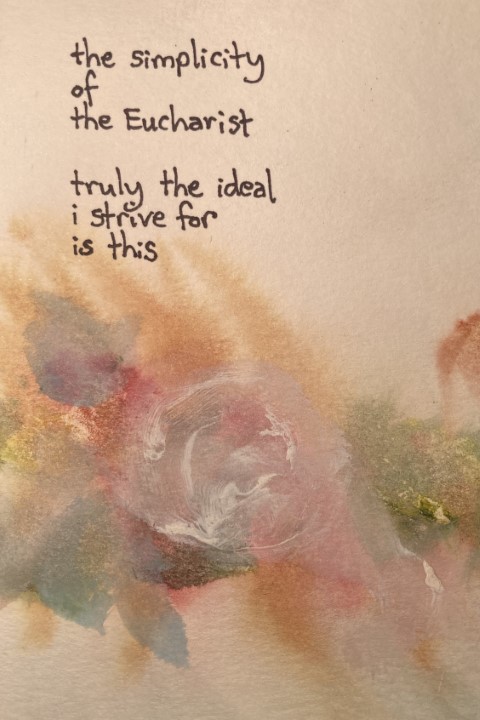 the simplicity
of
the Eucharist
truly the ideal
i strive for
is this